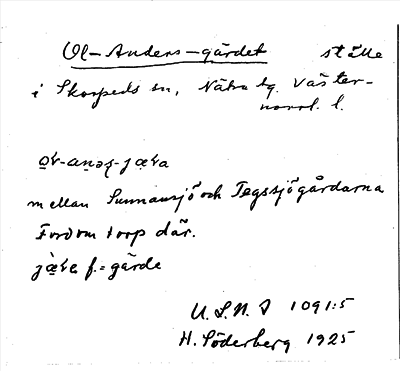 Ol-Anders-gärdet ställe
i Skorpeds sn, Nätra hg. Väster-
norrl. l.
mellan Sunnansjö och Tegssjögårdarna
Fordom torp där.
f. = gärde
U.L.M.A 1091:5
H. Söderberg 1925